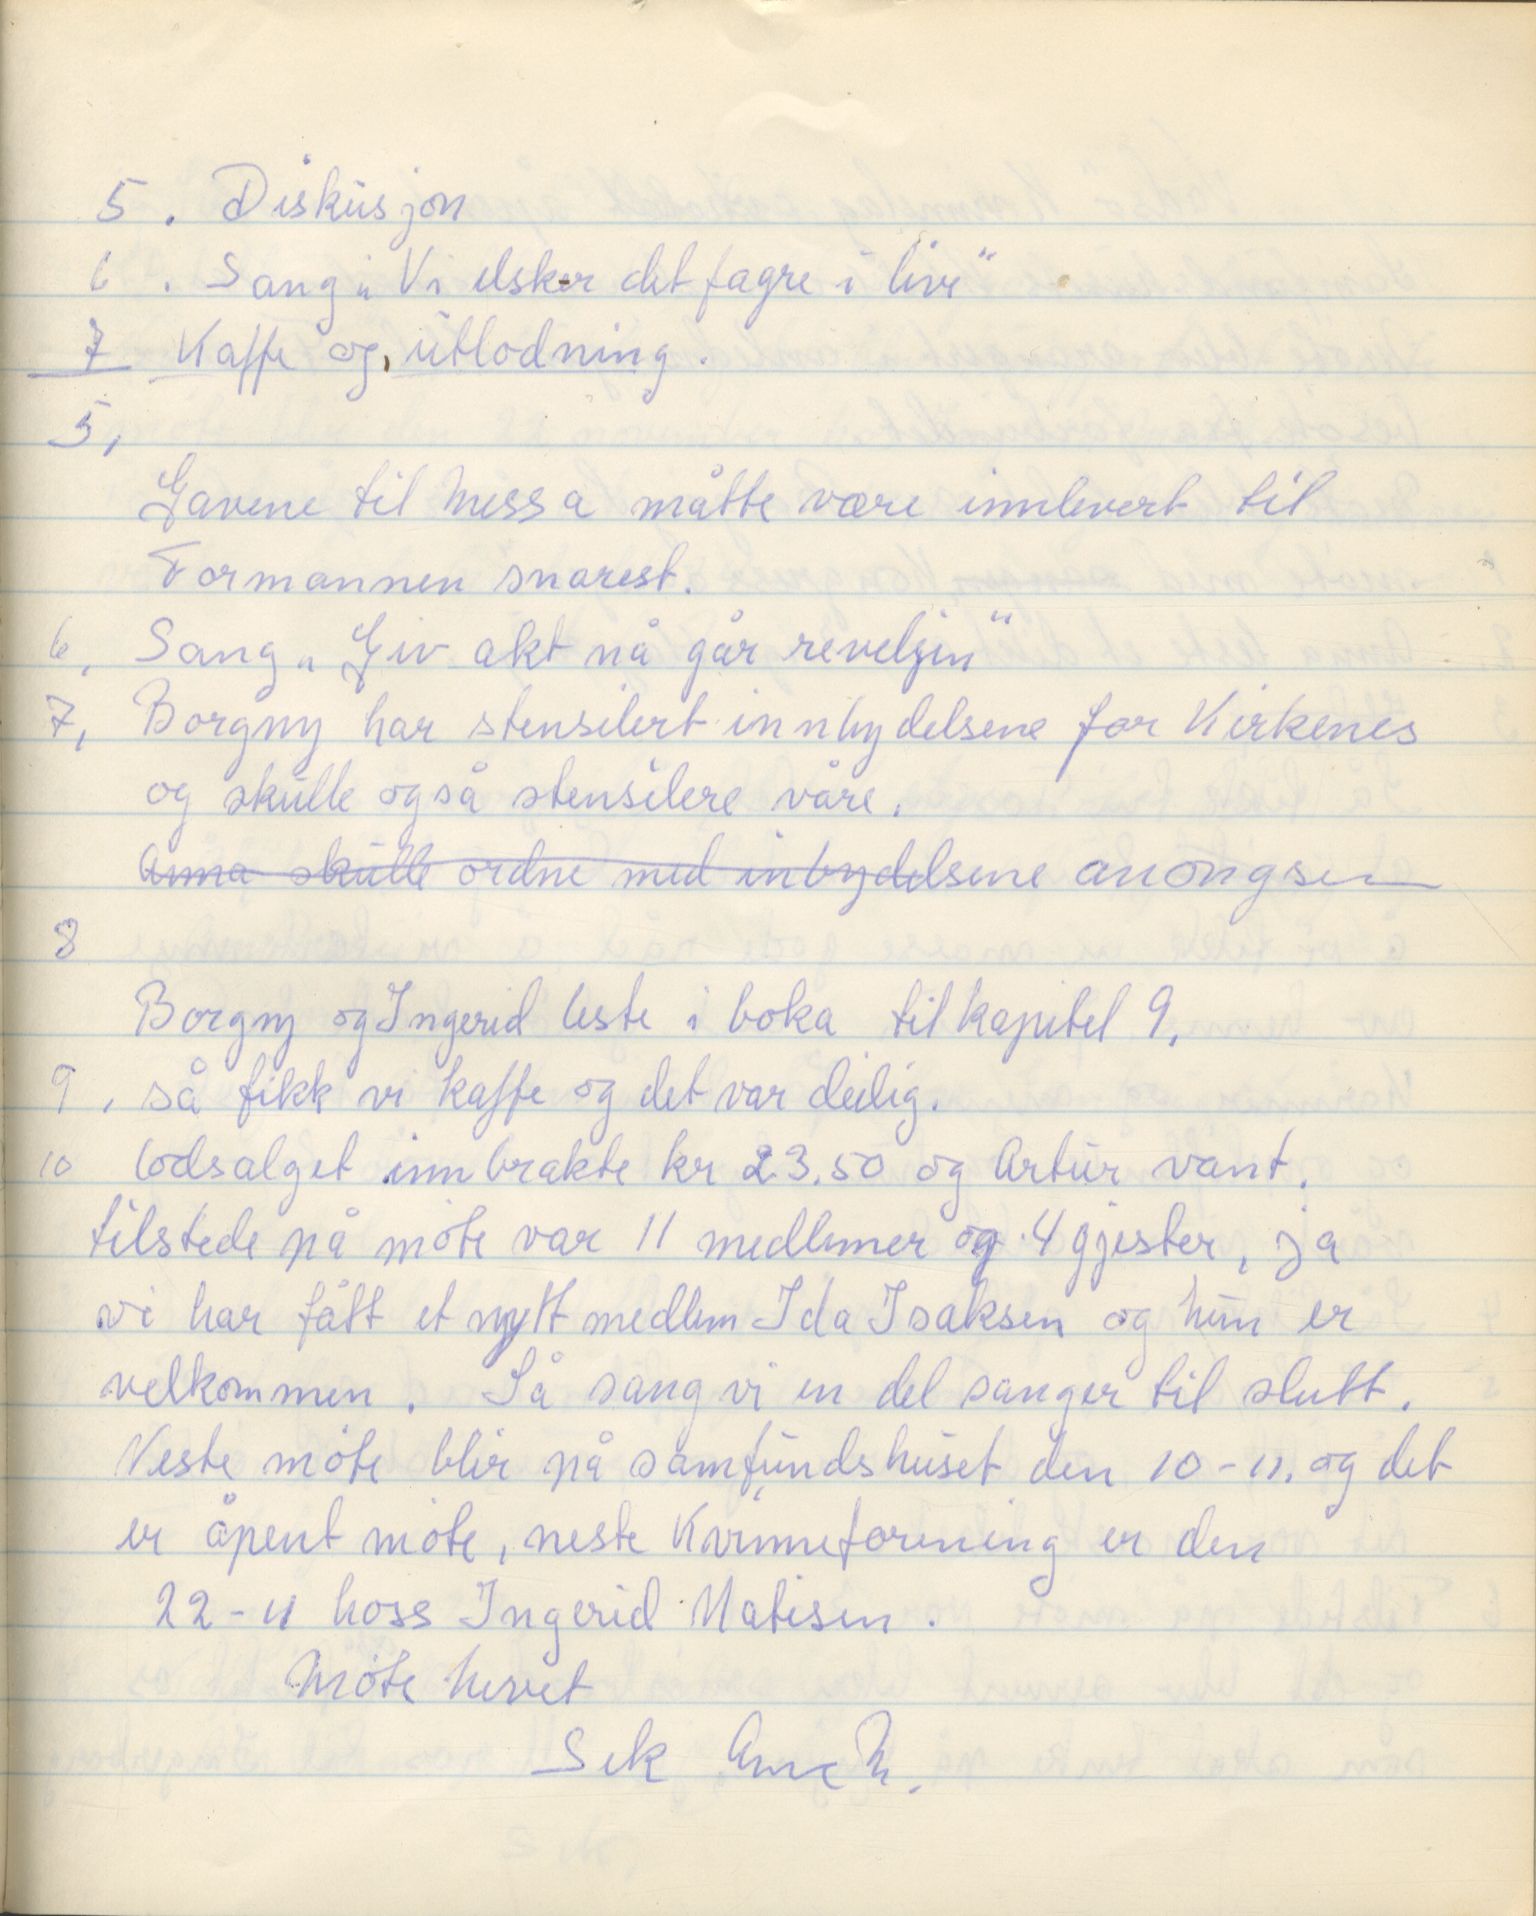 5. Diskusjon
6. Sang „Vi elsker det fagre i livi"
7 Kaffe og, utlodning.
5,
Gavene til Messa måtte være innlevert til
Formannen snarest.
6, Sang „Giv akt nå går reveljin"
7, Borgny har stensilert innbydelsene for Kirkenes
og skulle også stensilere våre.
Anna skulle ordne med inbydelsene anongsen
8
Borgny og Ingerid leste i boka til kapitel 9.
9, så fikk vi kaffe og det var deilig.
10 lodsalget innbrakte kr 23.50 og Artur vant.
tilstede på möte var 11 medlemer og 4 gjester, ja
vi har fått et nytt medlem Ida Isaksen og hun er
velkommen. Så sang vi en del sanger til slutt.
Neste möte blir på samfundshuset den 10-11. og det
er åpent möte, neste Kvinneforening er den
22-11 hoss Ingerid Matisen.
Möte hevet
Sek